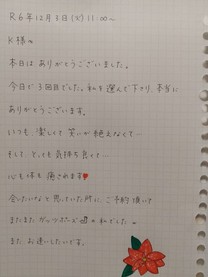 R6年12月3日(火)11:00〜
K様へ
本日は ありがとうございました。
今日で3回目でした。私を選んで下さり、本当に
ありがとうございます。
いつも、楽しくて 笑いが絶えなくて…
そして、とっても 気持ち良くて…
心も体も 癒されます♥
会いたいなと思っていた所に、ご予約頂いて
またまた ガッツポーズ の私でした〜
また、お逢いしたいです。